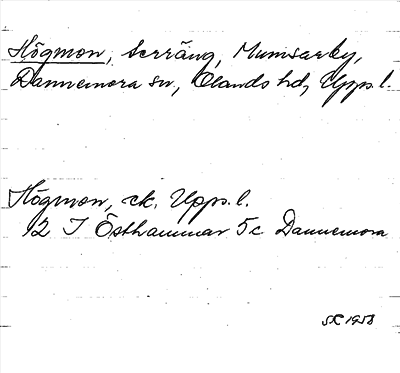 Högmon, terräng, Mumsarby,
Dannemora sn, Olands hd, Uppl.
Högmon, ek. Uppl.
12 I Östhammar 5c Dannemora
1958